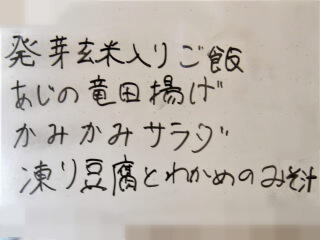 発芽玄米入りご飯
あじの竜田揚げ
かみかみサラダ
凍り豆腐とわかめのみそ汁